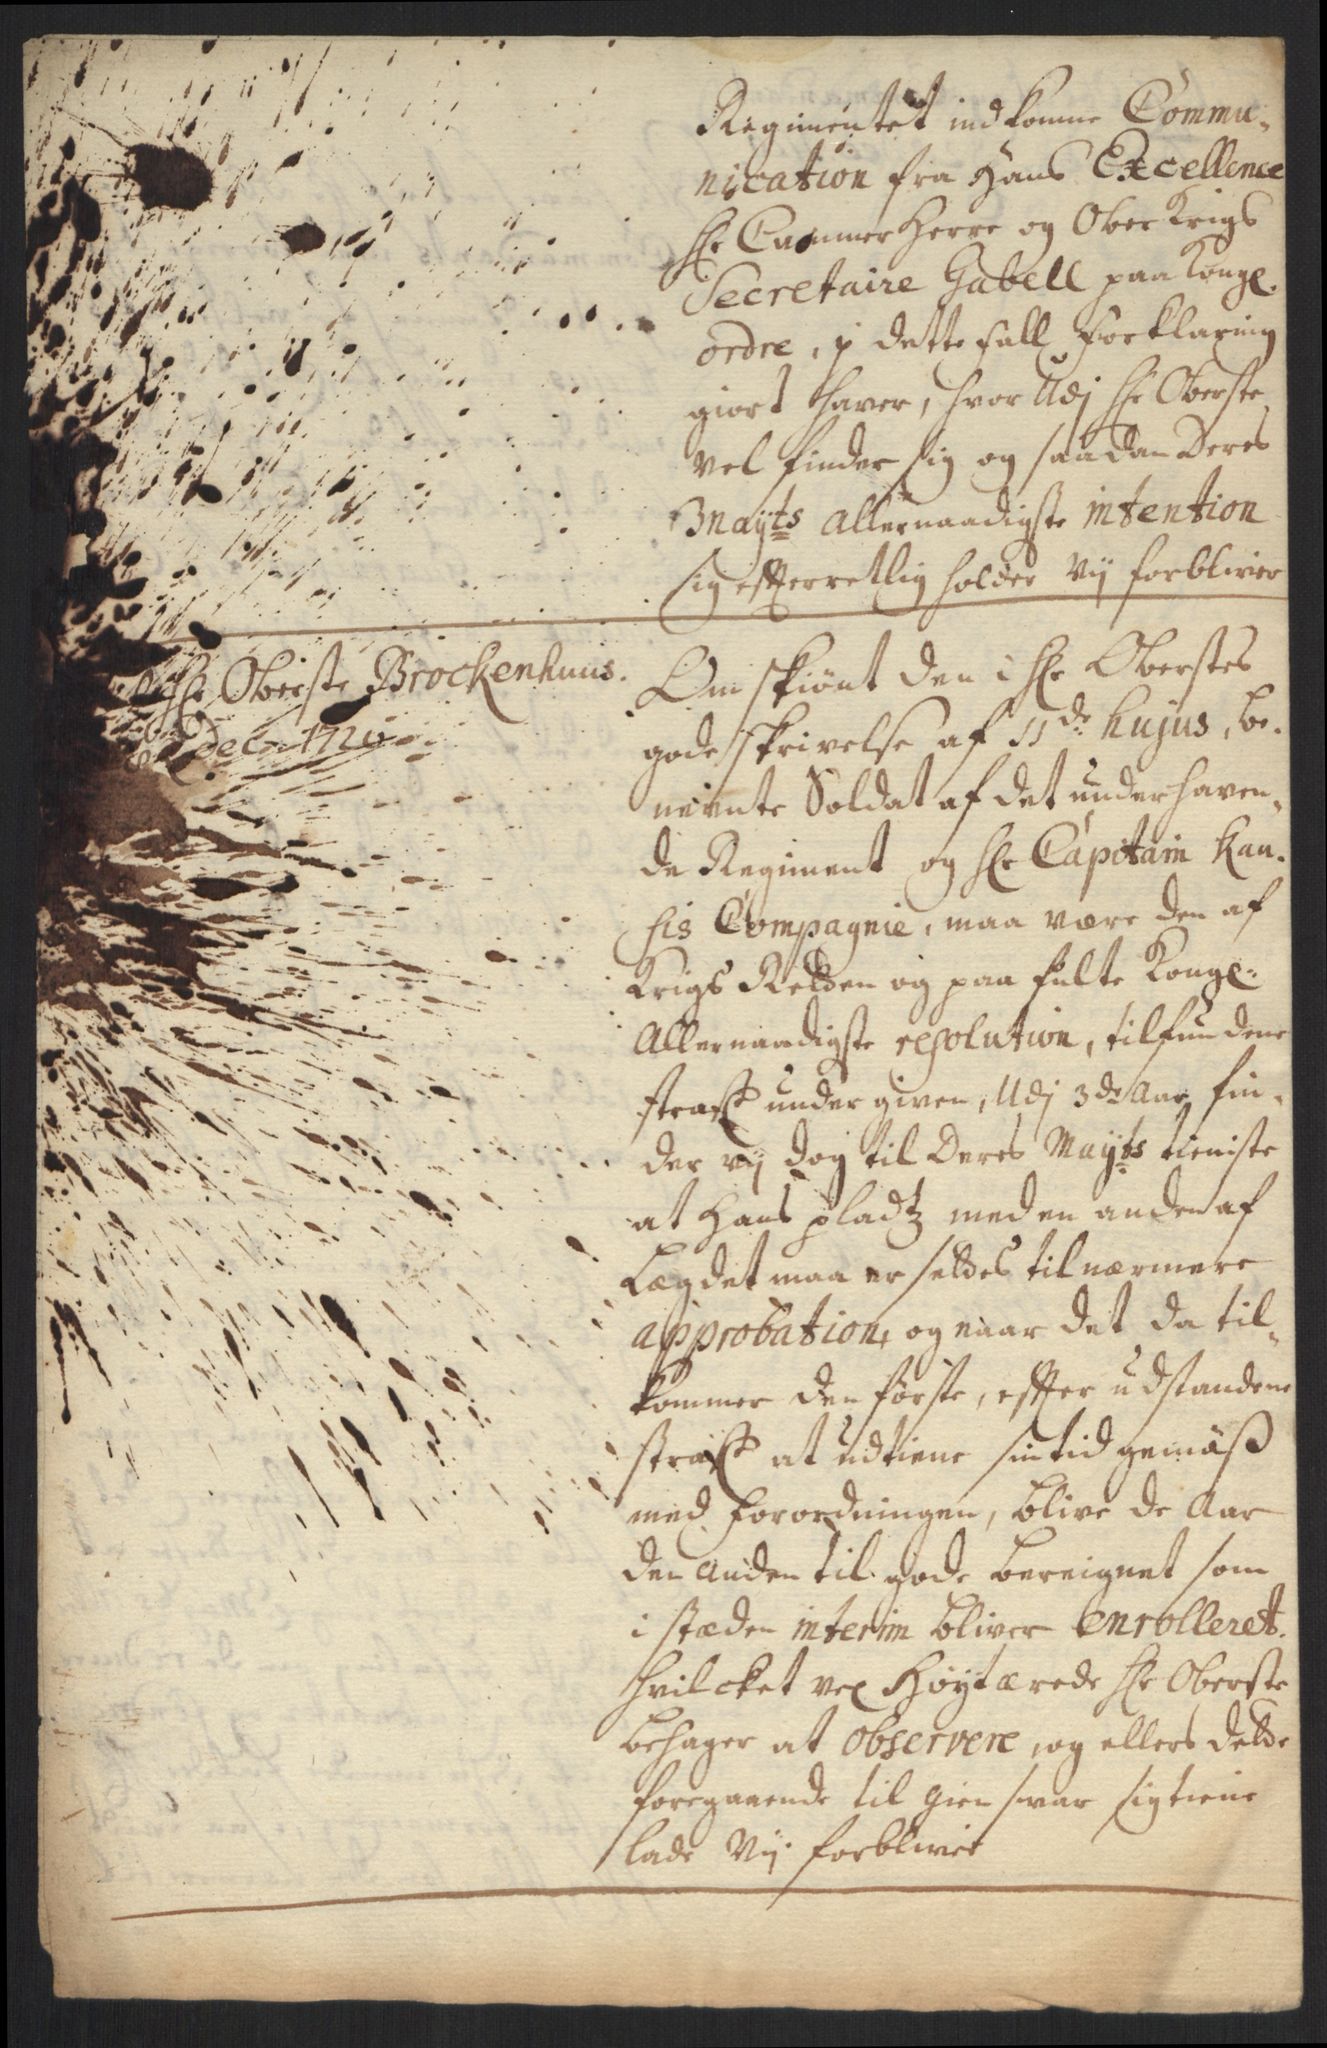 Regimentet indkomne Commu-
nication fra Hans Excellence
Hr Cammer Herre og Ober Krigs
Secretaire Gabell paa Kongl.
ordre, i dette fall forklaring
giort haver, hvor Udj Hr Oberste
vel finder sig og saadan Deres
Mayts allernaadigste intention
sig effterretlig holder Vij forbliver
Hr Oberste Brockenhuus.
Dec. 1720
Om skiönt den i Hr Oberstes
gode skrivelse af 11de hujus, be-
nevnte Soldat af det underhaven-
de Regiment og Hr Capitain Kau-
sis Compagnie, maa være den af
Krigs Retten og paa fulte Kongl.
Allernaadigste resolution, tilfundene
straff under given, Udj 3de Aar fin-
der vij dog til Deres Mayts tieniste
at Hans pladtz med en anden af
Lægdet maa ersettes til nærmere
approbation, og naar det da til-
kommer den förste, effter udstandene
straff at udtiene sin tid gemäß
med forordningen, blive de Aar
den anden til gode bereignet som
i stæden interim bliver enrolleret.
Hvilcket vel Höyt ærede Hr Oberste
behager at observere, og ellers dette
foregaaende til giensvar sig tiene
lade Vij forblive